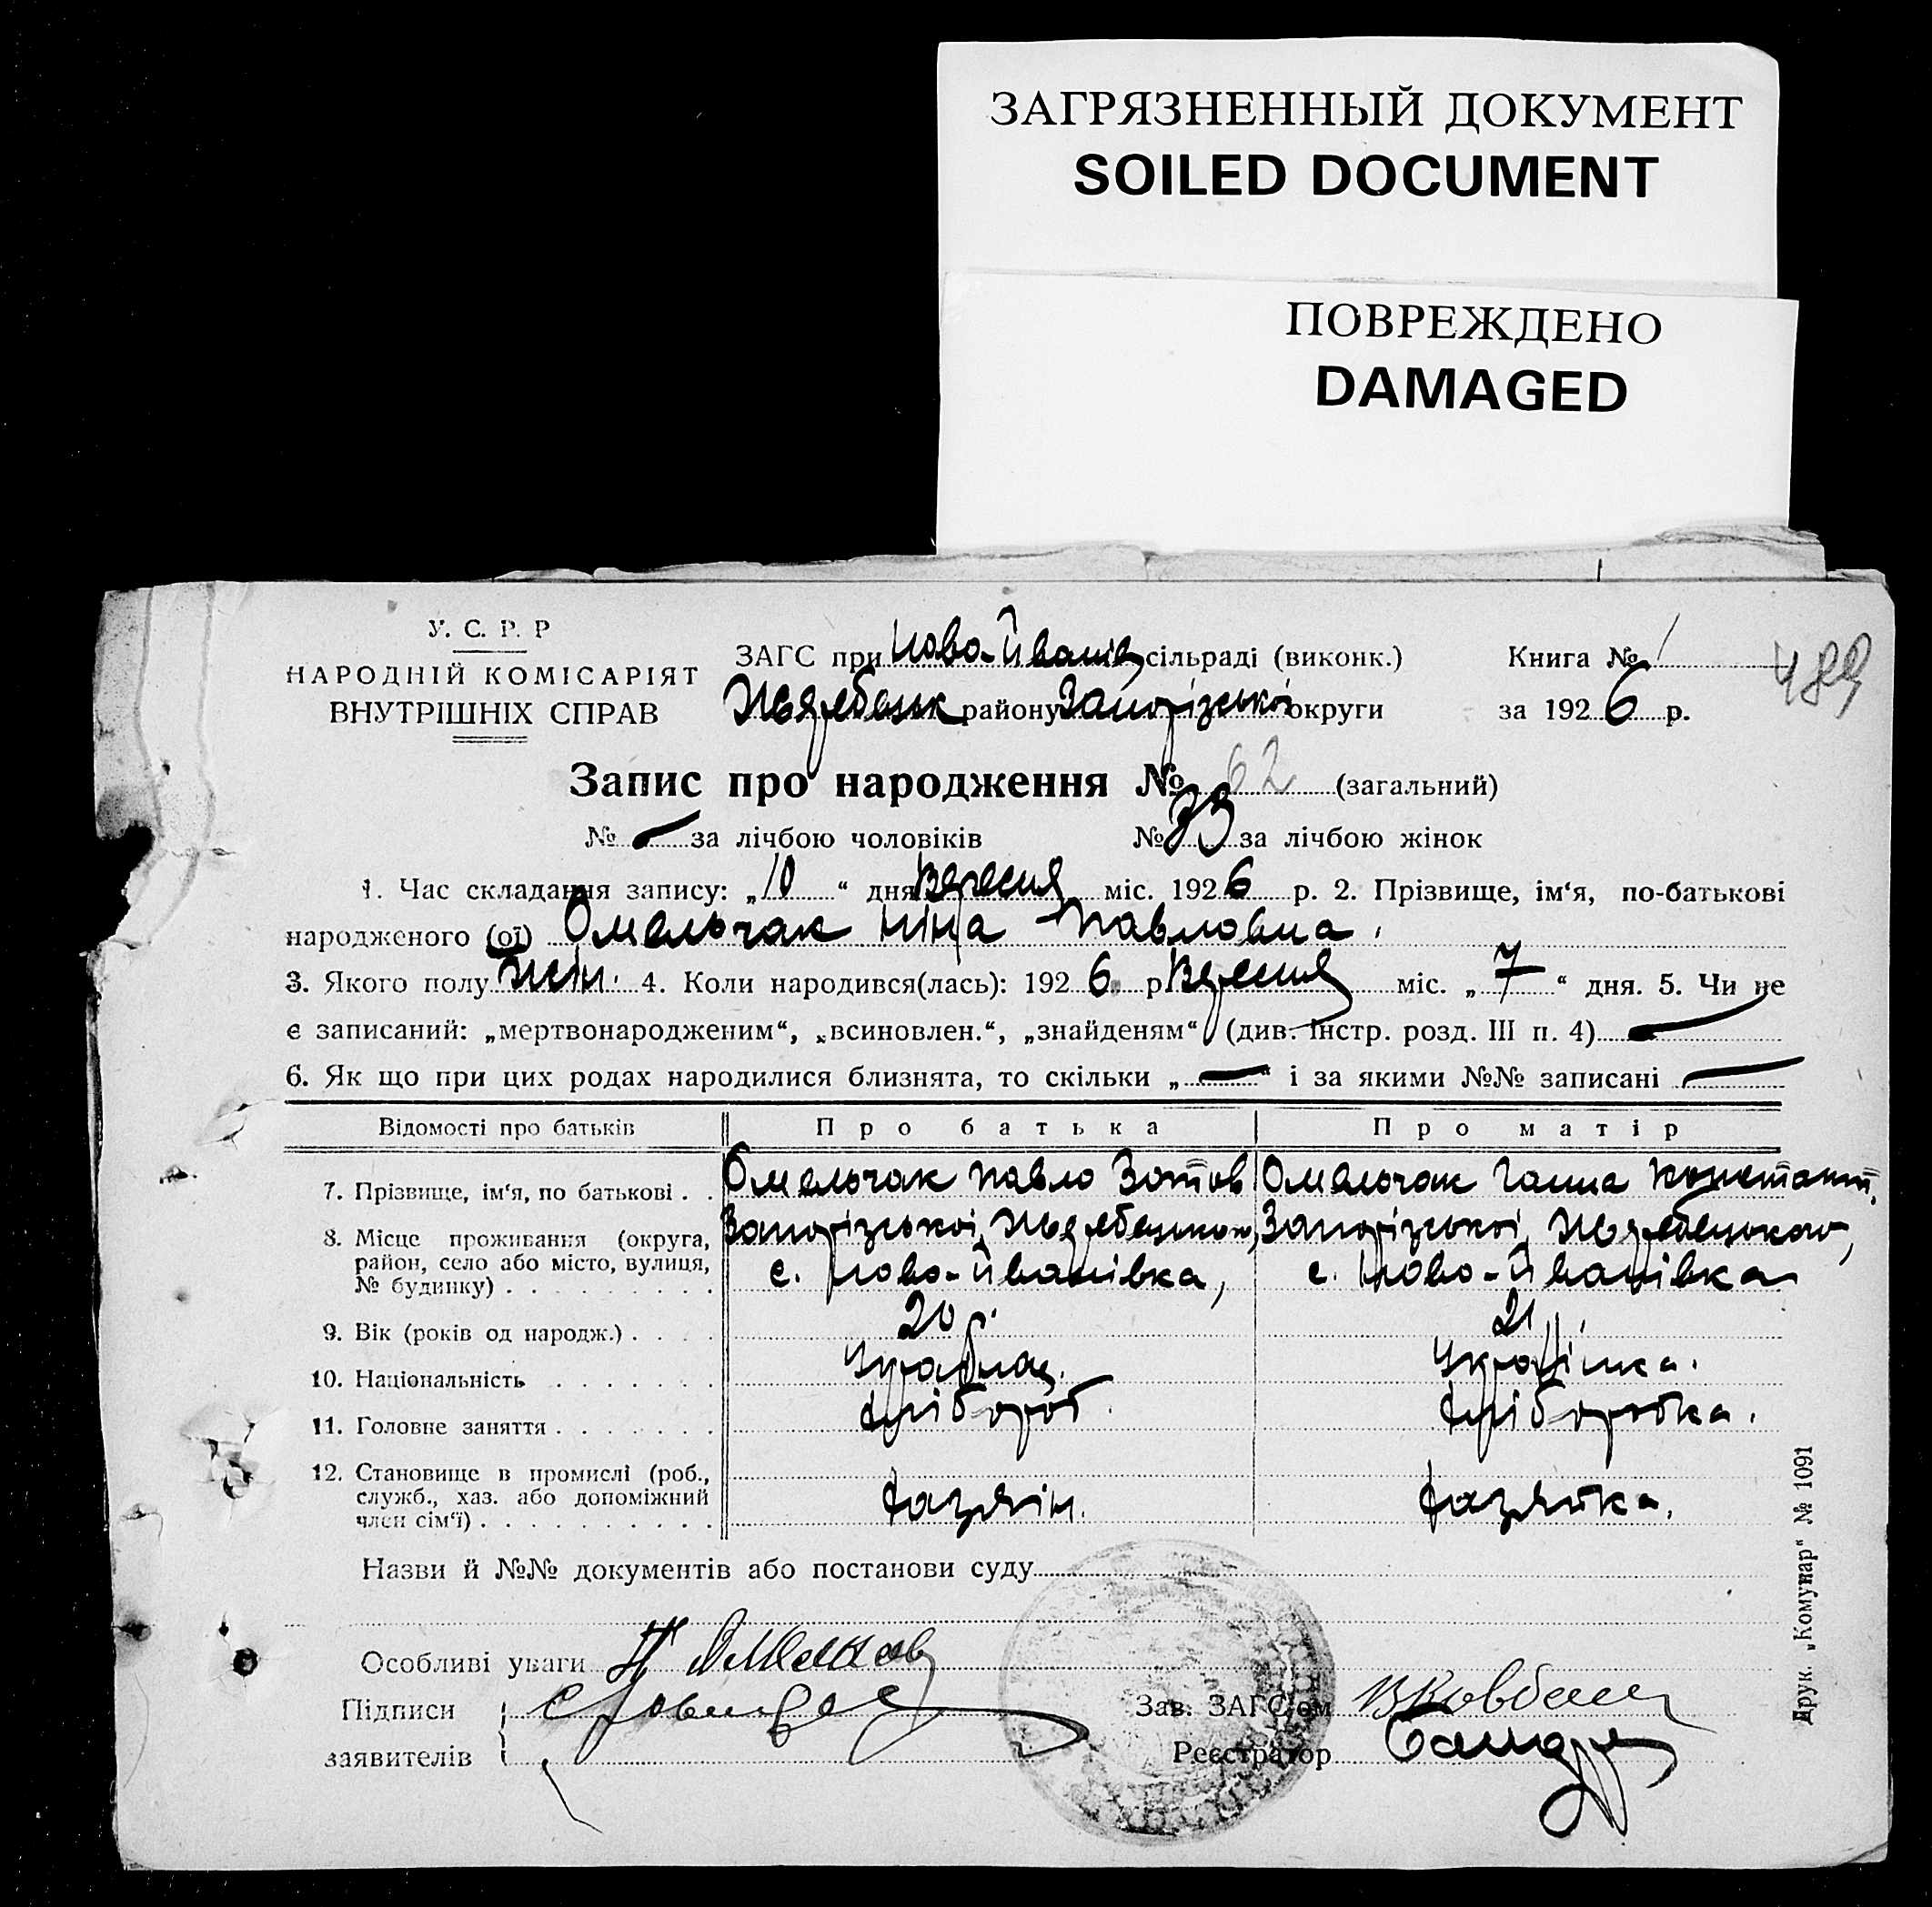 ЗАГРЯЗНЕННЫЙ ДОКУМЕНТ
SOILED DOCUMENT
ПОВРЕЖДЕНО
DAMAGED
У. С. Р. Р
НАРОДНІЙ КОМІСАРІЯТ
ВНУТРІШНІХ СПРАВ
ЗАГС при Ново-Йванів сільраді (виконк.)
Жеребецьк району Запорізької округи
Книга № 1
за 1926 р.
489
Запис про народження № 62 (загальний)
№ — за лічбою чоловіків № 33 за лічбою жінок
1. Час складання запису: „10“ дня Вересня міс. 1926 р. 2. Прізвище, ім‘я, по-батькові
народженого (ої) Омельчак Ніна Павловна.
3. Якого полу жін. 4. Коли народився(лась): 1926 р. Вересня міс. „7“ дня. 5. Чи не
є записаний: „мертвонародженим“, „всиновлен.“, „знайденям“ (див. інстр. розд. III п. 4) —
6. Як що при цих родах народилися близнята, то скільки „—“ і за якими №№ записані —
Відомості про батьків Про батька Про матір
7. Прізвище, ім‘я, по батькові . . Омельчак Павло Зотов Омельчак Ганна Констант.
8. Місце проживання (округа, район, село або місто, вулиця, № будинку) . . . . . . . . . Запорізької, Жеребецького, с. Ново-Йванівка, Запорізької, Жеребецького, с. Ново-Йванівка
9. Вік (років од народж.) . . . . 20 р. 21 р.
10. Національність . . . . . . . Українець. Українка.
11. Головне заняття . . . . . . . Хлібороб. Хліборобка.
12. Становище в промислі (роб., служб., хаз. або допоміжний член сім‘ї) . . . . . . . . . . Хазяїн. Хазяйка.
Назви й №№ документів або постанови суду
Особливі уваги
Підписи
заявителів
Зав. ЗАГС‘ом
Реєстратор
Друк. „Комунар“ № 1091